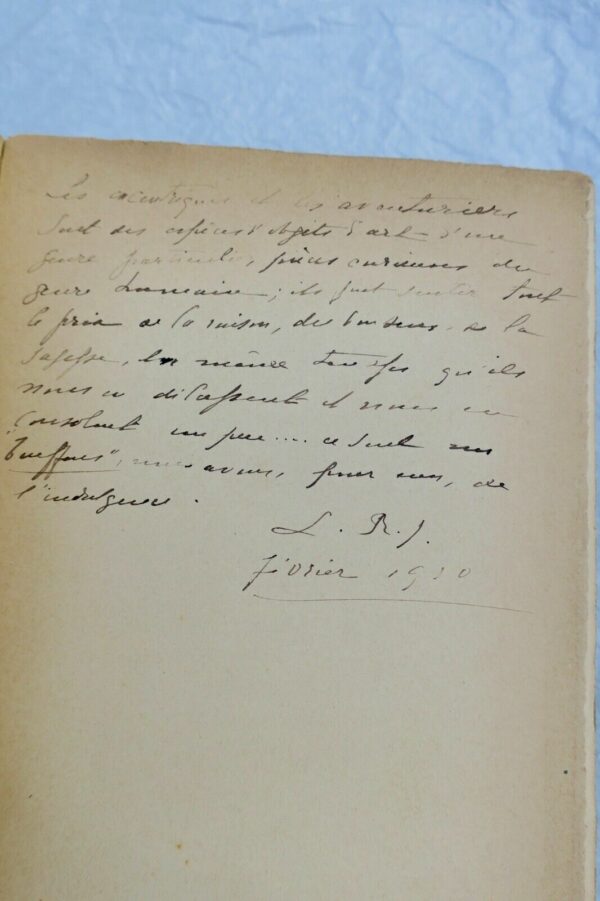 Les excentriques et les aventuriers
sont des espèces d'objets d'art d'une
genre particulier, pièces curieuses du
genre humain; ils font sentir tout
le prix de la raison, du bon sens, de la
sagesse, en même temps qu'ils
nous en délassent et nous en
consolent un peu.... ce sont nos
"bouffons", nous avons, pour eux, de
l'indulgence.
L. R. J.
février 1910